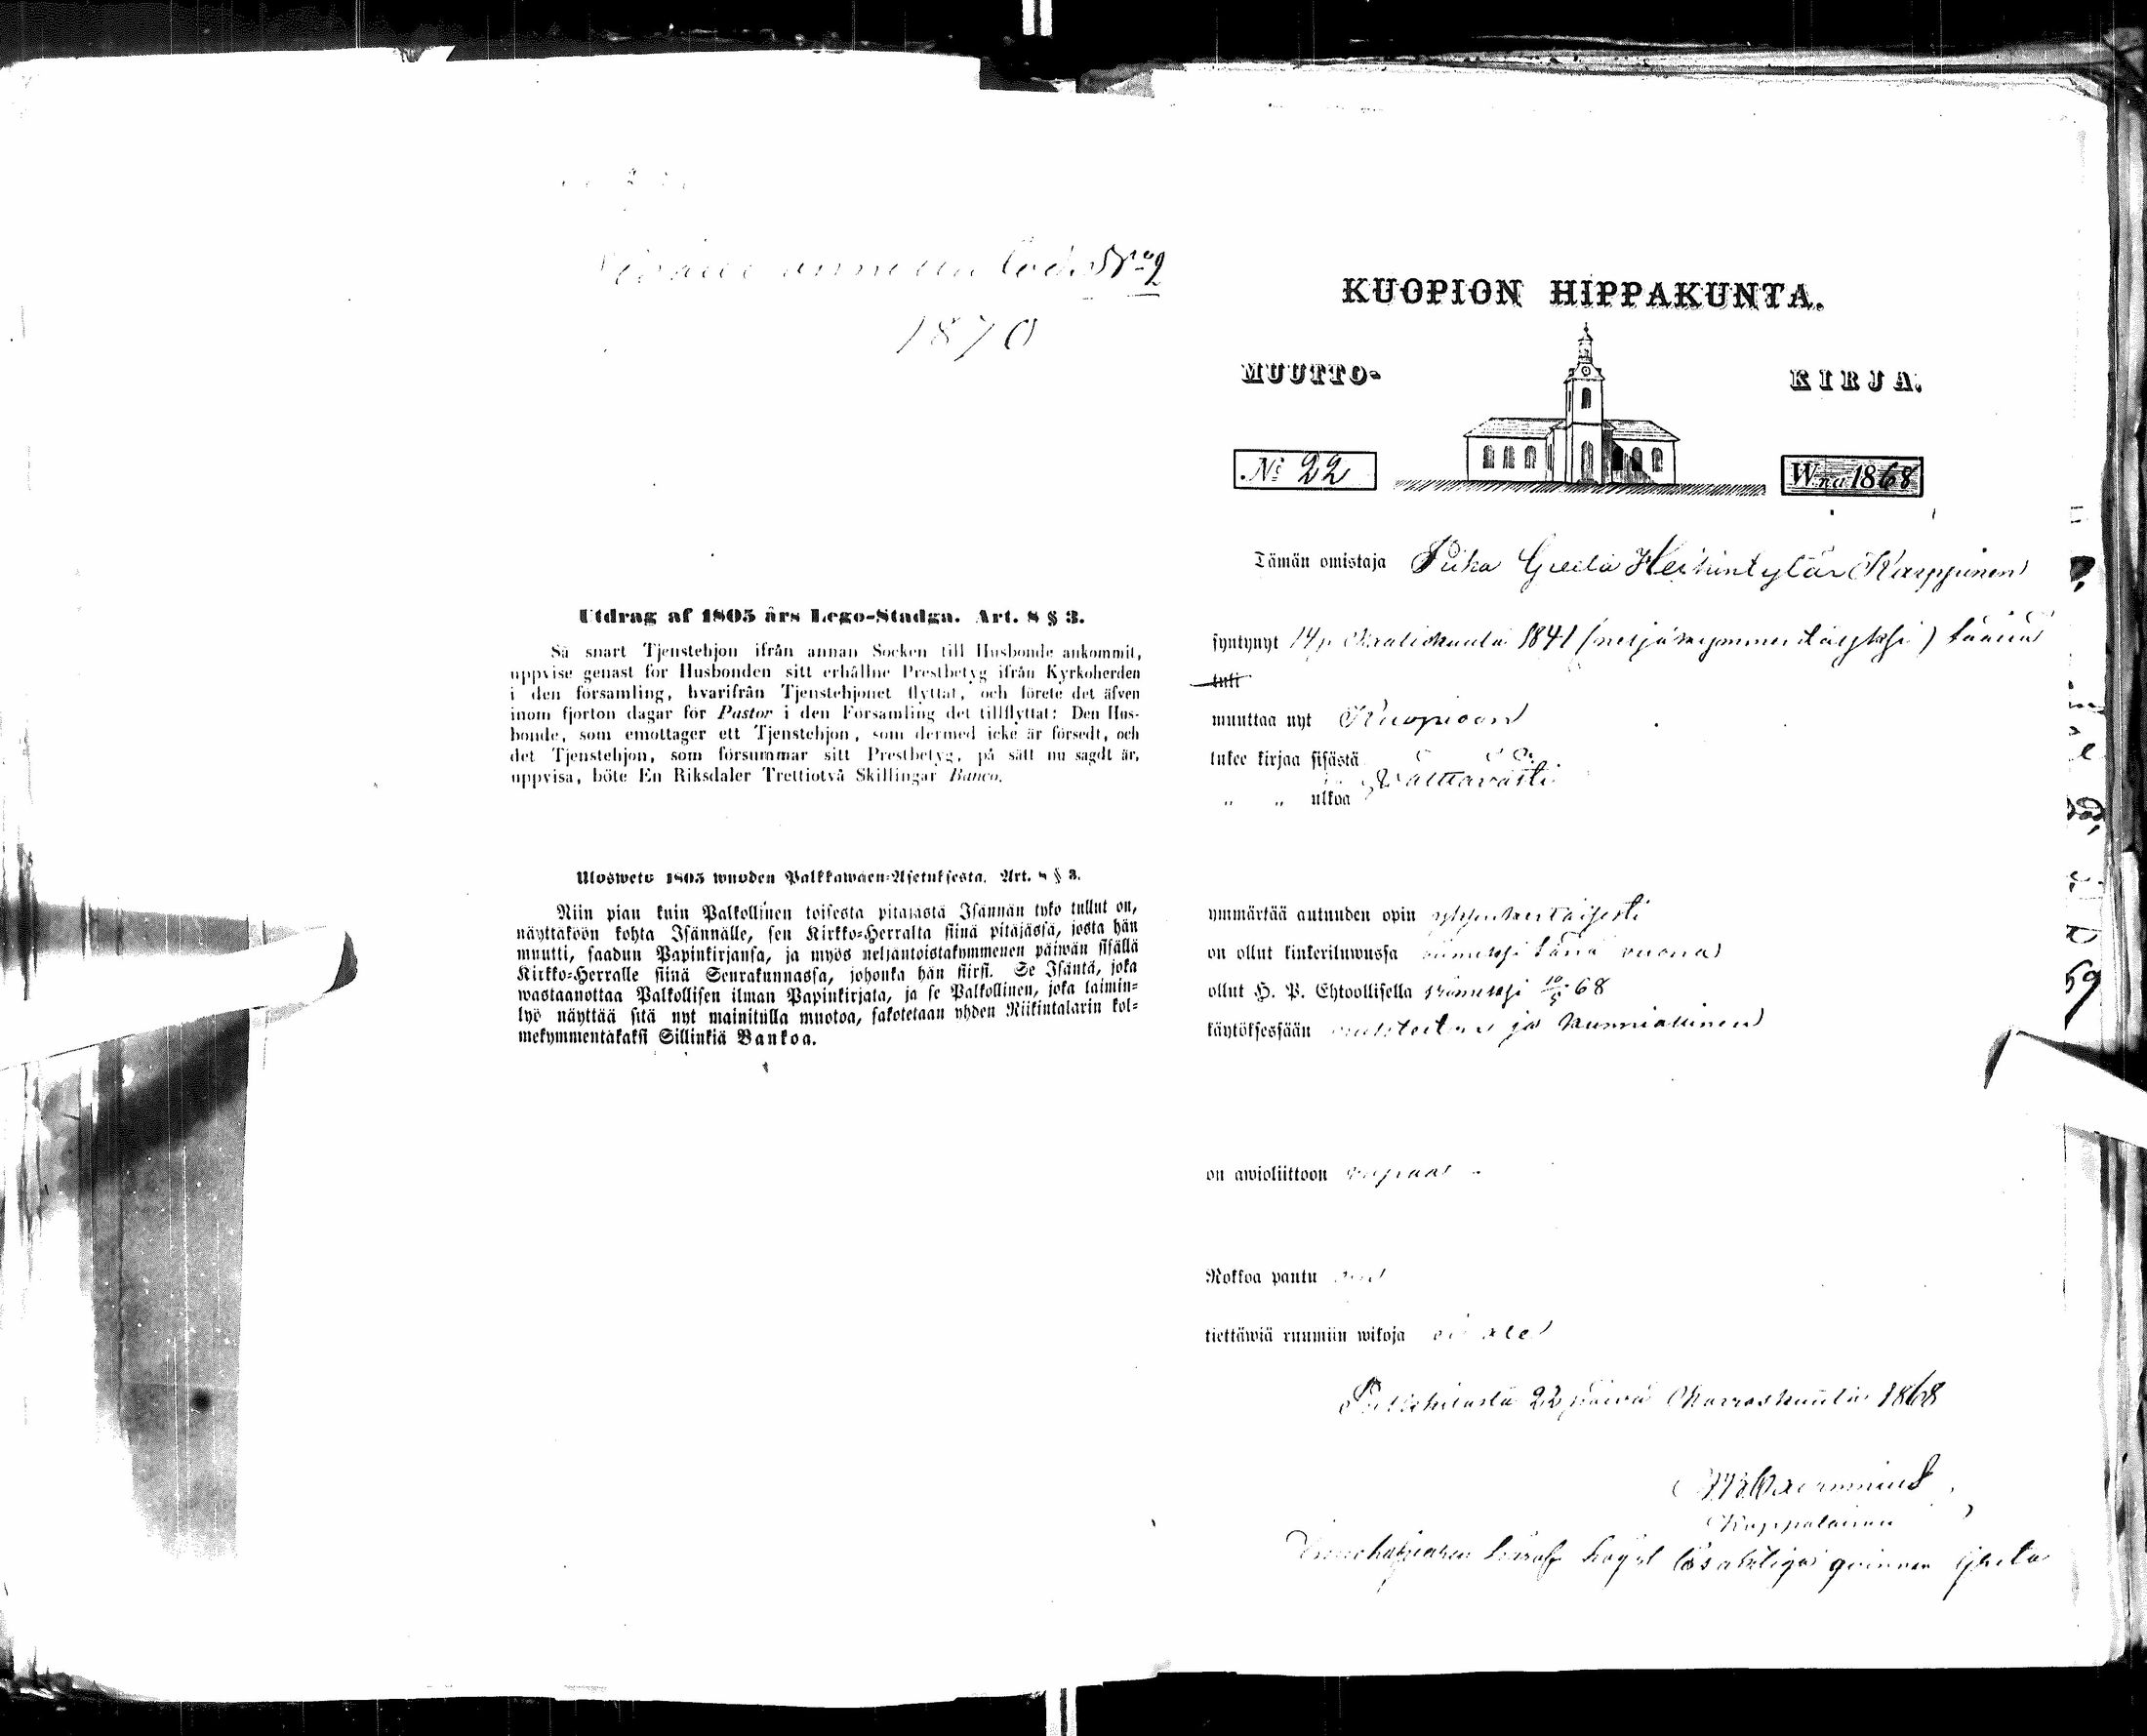 No 2
1870
Utdrag af 1805 års Lego-Stadga. Art. 8 § 3.
Så snart Tjenstehjon ifrån annan Socken till Husbonde ankommit,
uppvise genast för Husbonden sitt erhållne Prestbetyg ifrån Kyrkoherden
i den församling, hvarifrån Tjenstehjonet flyttat, och förete det äfven
inom fjorton dagar för Pastor i den Församling det tillflyttat: Den Hus-
bonde, som emottager ett Tjenstehjon, som dermed icke är försedt, och
det Tjenstehjon, som försummar sitt Prestbetyg, på sätt nu sagdt är,
uppvisa, böte En Riksdaler Trettiotvå Skillingar Banco.
Ulosweto 1805 wuoden Palkkawäen-Asetuksesta. Art. 8 § 3.
Niin pian kuin Palkollinen toisesta pitäjästä Isännän tykö tullut on,
näyttäköön kohta Isännälle, sen Kirkko-Herralta siinä pitäjässä, josta hän
muutti, saadun Papinkirjansa, ja myös neljäntoistakymmenen päiwän sisällä
Kirkko-Herralle siinä Seurakunnassa, johonka hän siirsi. Se Isäntä, joka
wastaanottaa Palkollisen ilman Papinkirjata, ja se Palkollinen, joka laimin-
lyö näyttää sitä nyt mainitulla muotoa, sakotetaan yhden Riikintalarin kol-
mekymmentäkaksi Sillinkiä Bankoa.
KUOPION HIPPAKUNTA.
MUUTTO- KIRJA.
No 22
Wna 1868
Tämän omistaja Piika Greeta Heikintytär Karppinen
syntynyt 14 p 1841 (neljäkymmentäyksi) täällä
tuli
muuttaa nyt Kuopioon
lukee kirjaa sisästä
" " ulkoa Välttävästi
ymmärtää autuuden opin yksinkertaisesti
on ollut kinkeriluwussa viimeksi tänä vuonna
ollut H. P. Ehtoollisella viimeksi 10/5 68
käytöksessään ja kunniallinen
on awioliittoon vapaa
Rokkoa pantu on
tiettäwiä ruumiin wikoja ei ole
22 päivä Marraskuuta 1868
Kappalainen
Innehafvaren häraf lösaktiga qvinnan Greta